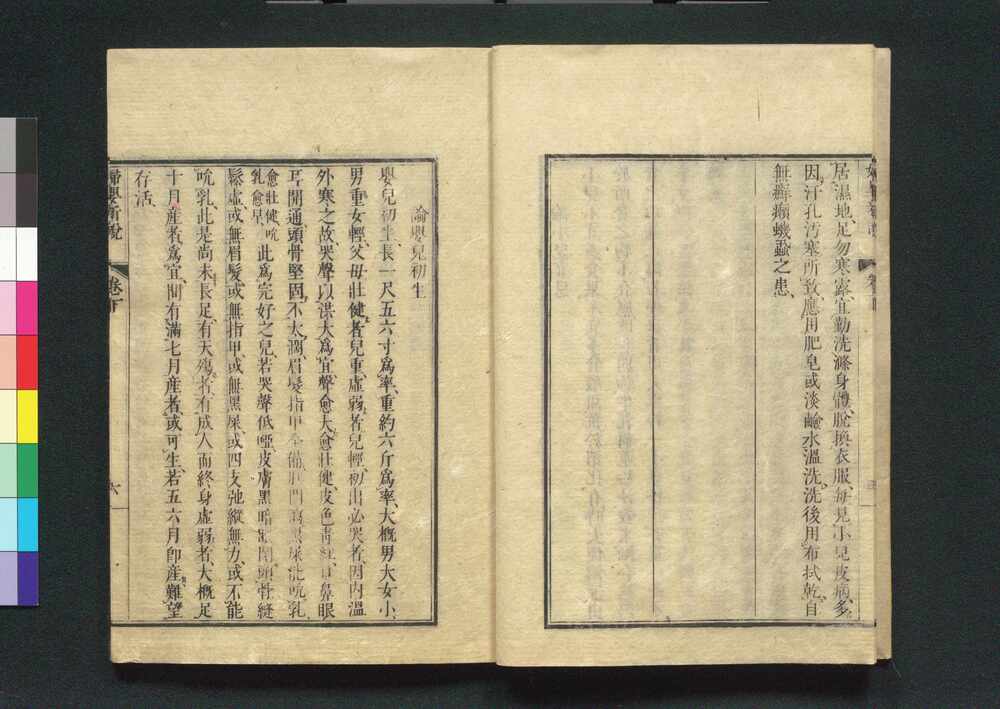 居濕地、足勿寒露、宜勤洗滌身體、脫換衣服、每見小兒皮病、多
因汗孔汚塞所致、應用肥皂或淡鹼水溫洗、洗後用布拭乾、自
無癬癩蟣蝨之患、
論嬰兒初生
嬰兒初生、長一尺五六寸爲率、重約六斤爲率、大槪男大女小、
男重女輕、父母壯健者兒重、虛弱者兒輕、初出必哭者、因內溫
外寒之故、哭聲以洪大爲宜、聲愈大、愈壯健、皮色靑紅、口鼻眼
耳開通、頭骨堅固、不太濶、眉髮指甲全備、肛門屙黑屎、能吮乳、
愈壯健、吮
乳愈早、
此爲完好之兒、若哭聲低啞、皮膚黑暗、頭骨縫
鬆虛、或無眉髮、或無指甲、或無黑屎、或四支弛縱無力、或不能
吮乳、此是尙未長足、有天殤者、有成人而終身虛弱者、大槪足
十月產者爲宜、間有滿七月產者、或可生、若五六月卽產、難望
存活、
婦嬰新說
卷下
六